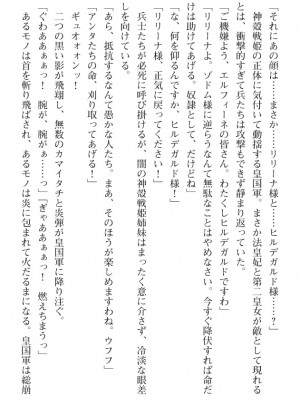 それにあの顔は……まさか……リリーナ様と……ヒルデガルド様……？」
神殻戦姫の正体に気付いて動揺する皇国軍。まさか法皇妃と第二皇女が敵として現れる
とは、衝撃的すぎて兵たちは攻撃もできず静まり返っていた。
「ご機嫌よう、エルフィーネの皆さん、わたくしヒルデガルドですわ」
「リリーナよ、ゾドム様に逆らうなんて無駄なことはやめなさい。今すぐ降伏すれば命だ
けは助けてあげる。奴隷として、だけどね」
「な、何を仰るんですか、ヒルデガルド様！」
「リリーナ様、正気に戻ってください！」
兵士たちが必死に呼び掛けるが、闇の神殻戦姫姉妹はまったく意に介さず、冷淡な眼差
しを向けている。
「あら、抵抗するなんて愚かな人たち。まあ、そのほうが楽しめますわね。ウフフ」
「アンタたちの命、刈り取ってあげる！」
ギュオォオンッ！
二つの黒い影が飛翔し、無数のカマイタチと炎弾が皇国軍に降り注ぐ。
「ぐわあああぁっ！　腕が、腕がぁ……っ」「ぎゃああぁっ！　燃えちまうっ」
あるモノは首を斬り飛ばされ、あるモノは炎に包まれて火だるまになる。皇国軍は総崩